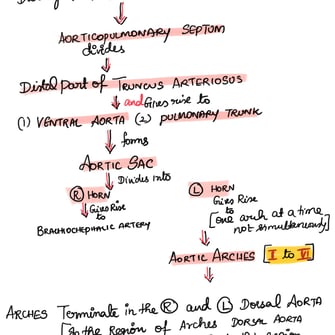 AORTICOPULMONARY SEPTUM
divides
Distal part of TRUNCUS ARTERIOSUS
and Gives rise to
(1) VENTRAL AORTA (2) PULMONARY TRUNK
forms
AORTIC SAC
Divides into
Ⓡ HORN
Gives Rise
to
BRACHIOCEPHALIC ARTERY
Ⓛ HORN
Gives Rise
to
[One arch at a time
not simultaneously]
AORTIC ARCHES [I to VI]
ARCHES Terminate in the Ⓡ and Ⓛ Dorsal AORTA
[In the Region of Arches DORSAL AORTA